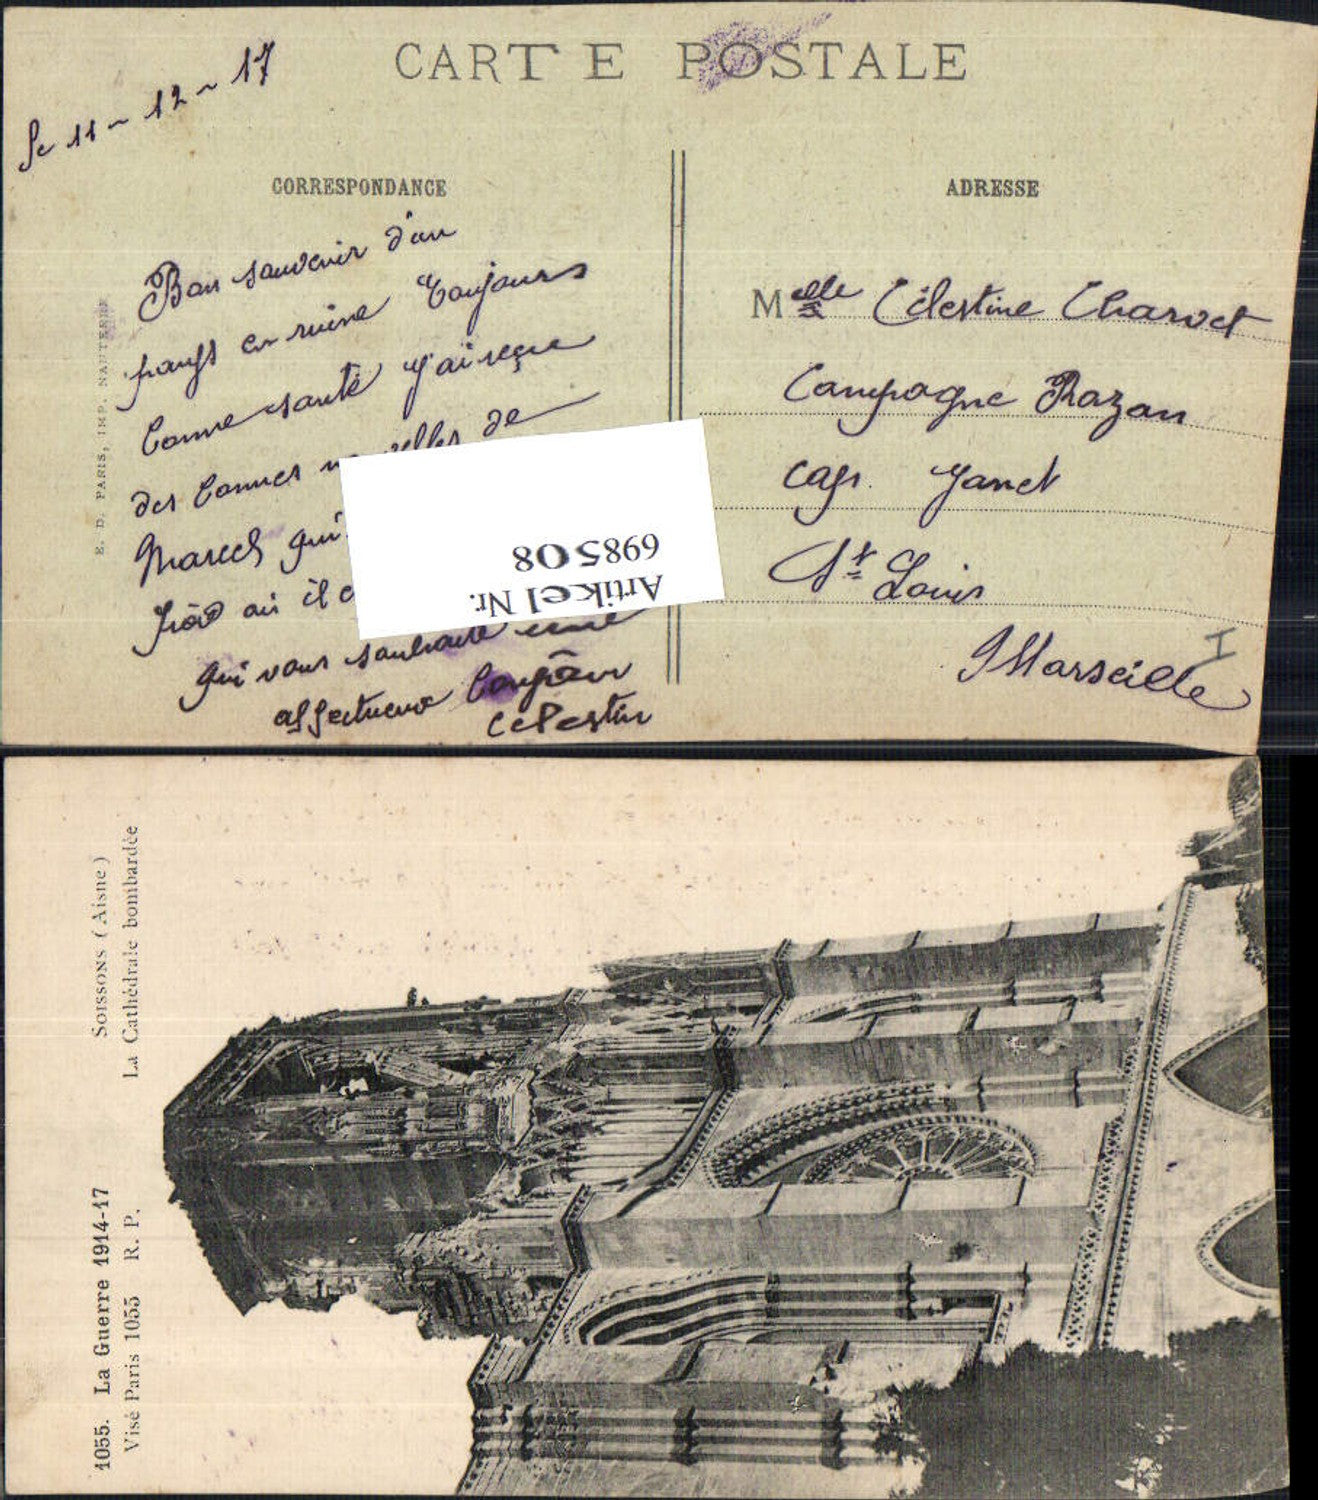 CARTE POSTALE
Le 11 - 12 - 17
CORRESPONDANCE
Bon souvenir d'un
pays en ruine toujours
bonne santé j'ai reçue
des bonnes nouvelles de
Marcel qui
froid ou il
qui vous souhaite une
affectueux
Célestin
E. D. PARIS, IMP. NANTERRE
Artikel Nr.
698508
ADRESSE
Melle Célestine Charvet
Campagne Razan
cap. Janet
St Louis
Marseille
I
1055. La Guerre 1914-17
Visé Paris 1055 R. P.
SOISSONS (Aisne)
La Cathédrale bombardée